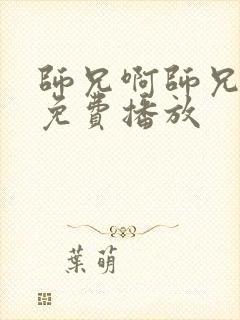 師兄啊師兄
免費播放
葉萌